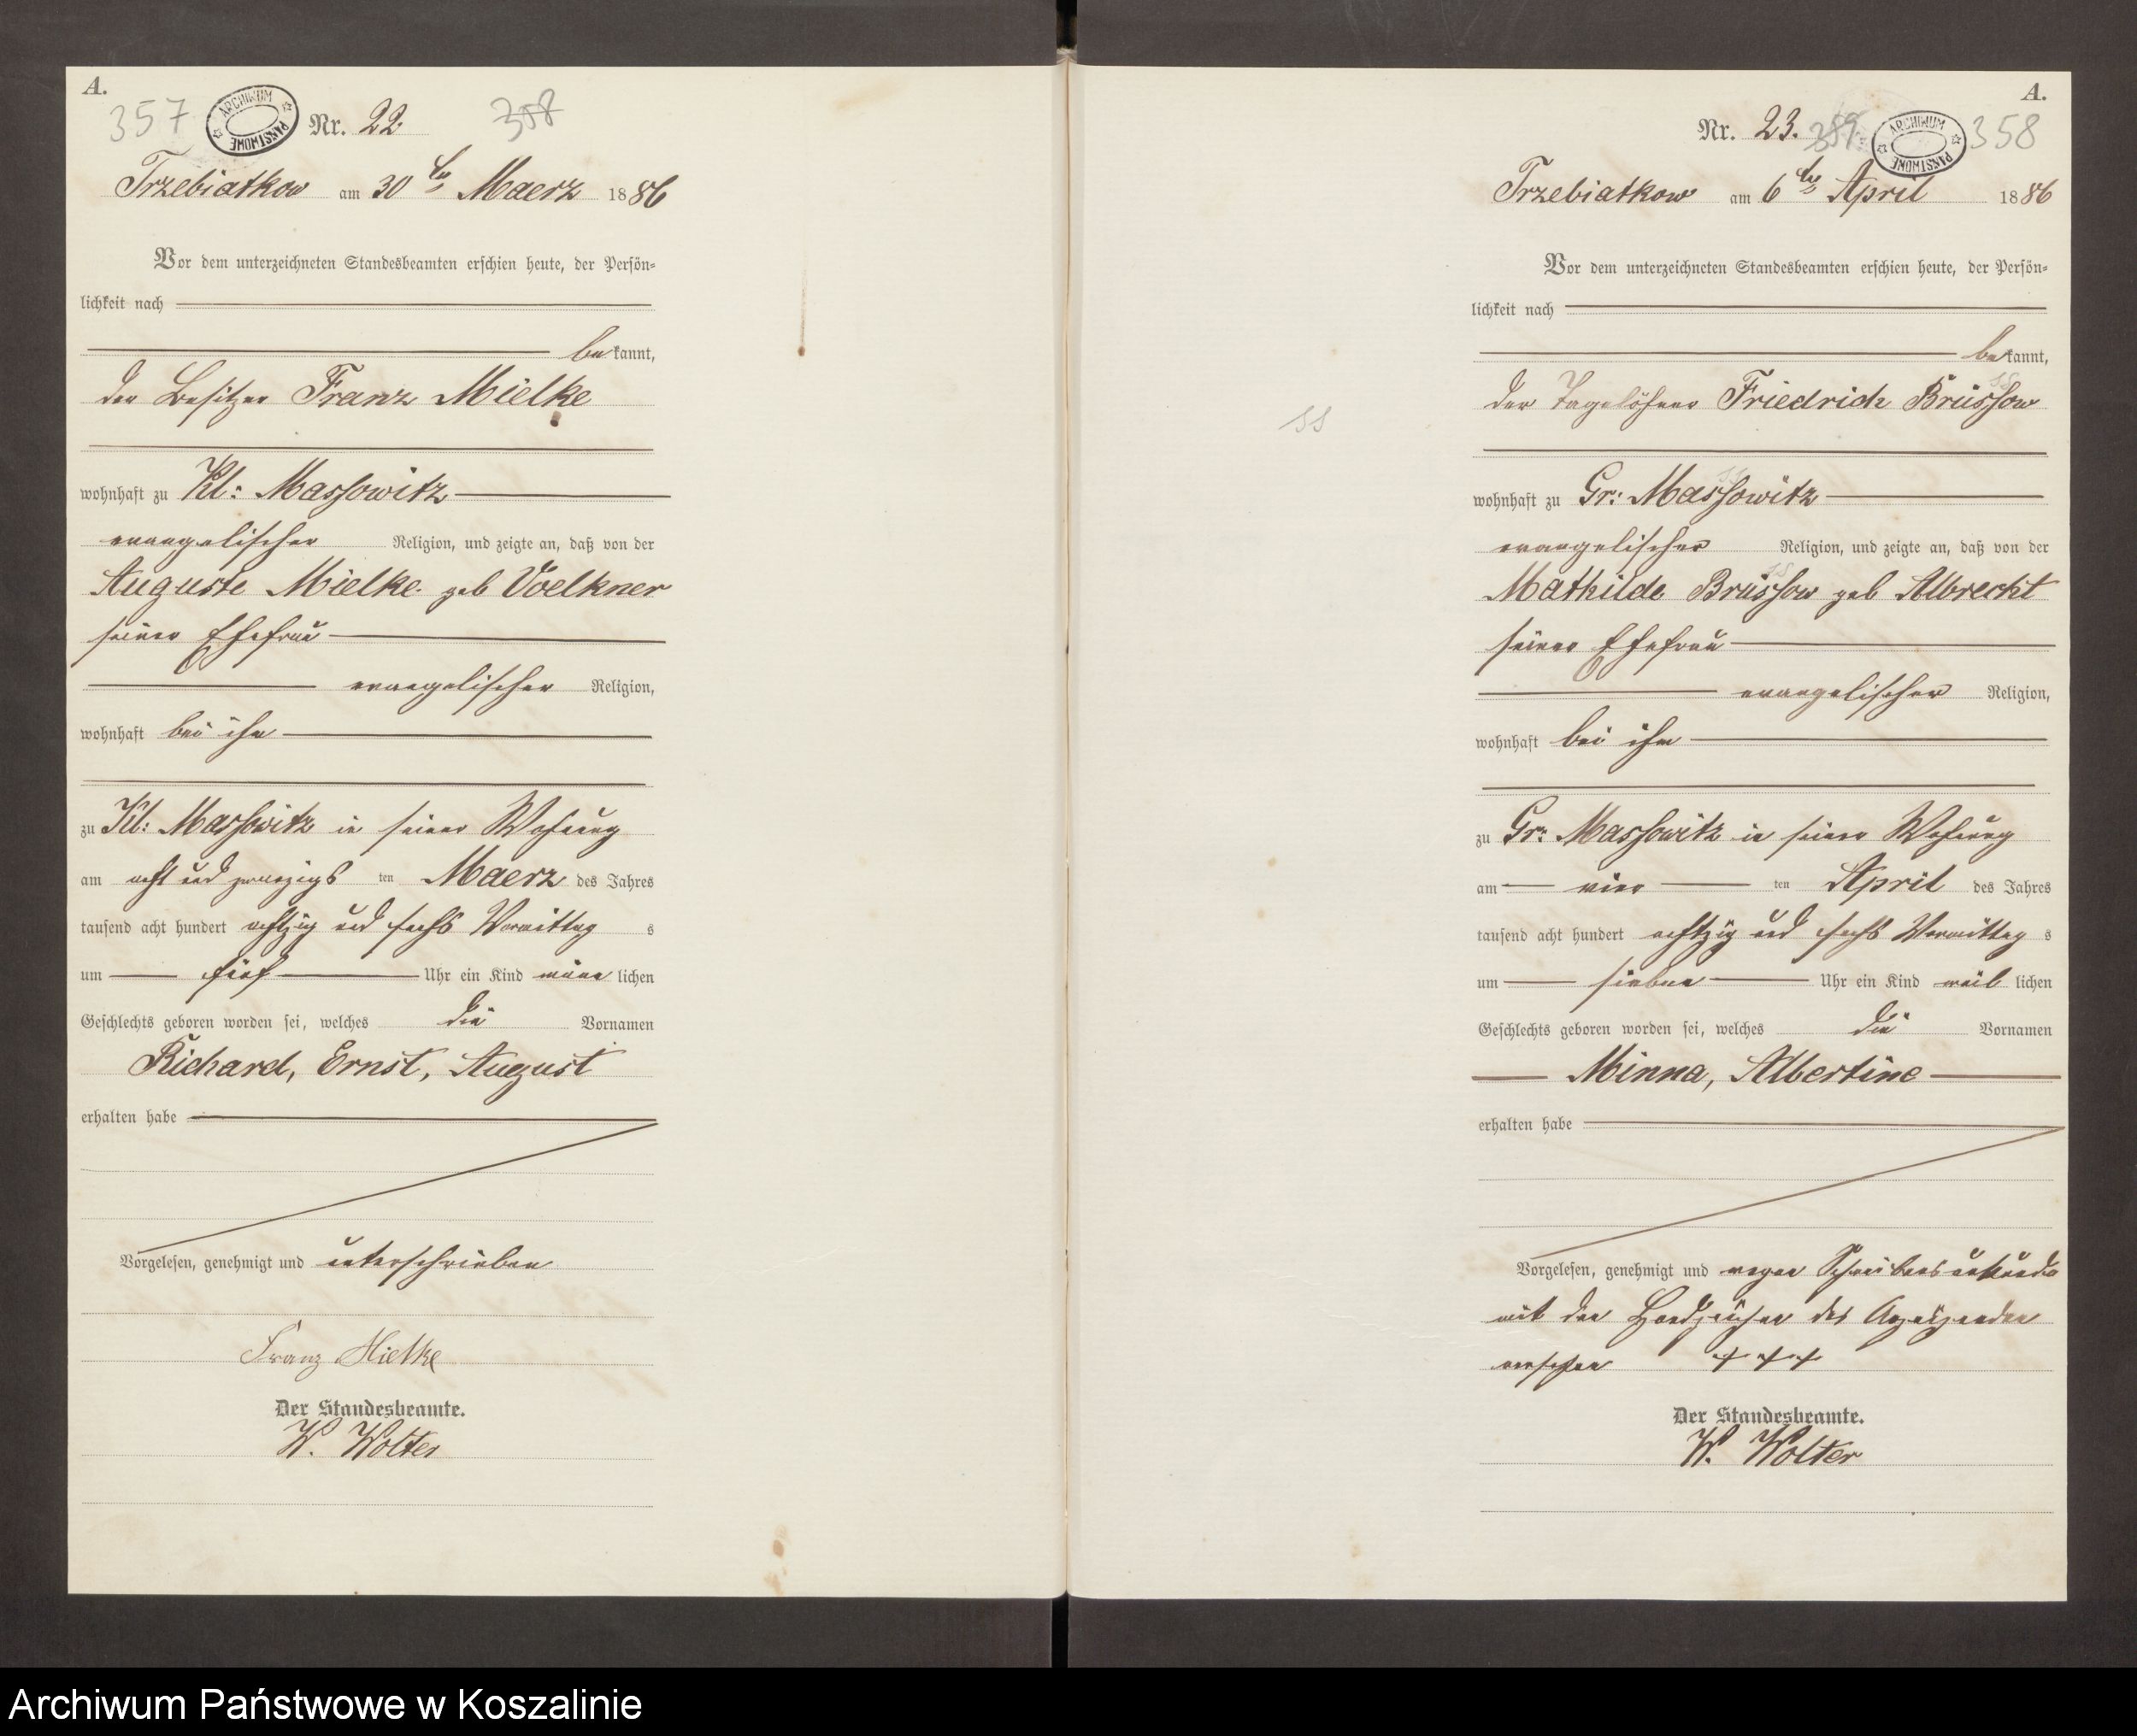 A.
357
ARCHIWUM PAŃSTWOWE
Nr. 22.
358
Trzebiatkow am 30ten Maerz 1886
Vor dem unterzeichneten Standesbeamten erschien heute, der Persön-
lichkeit nach
bekannt,
der Besitzer Franz Mielke
wohnhaft zu Kl: Massowitz
evangelischer Religion, und zeigte an, daß von der
Auguste Mielke geb Voelkner
seiner Ehefrau
evangelischer Religion,
wohnhaft bei ihm
zu Kl: Massowitz in seiner Wohnung
am acht und zwanzigsten Maerz des Jahres
tausend acht hundert achtzig und sechs Vormittags
um fünf Uhr ein Kind männlichen
Geschlechts geboren worden sei, welches die Vornamen
Richard, Ernst, August
erhalten habe
Vorgelesen, genehmigt und unterschrieben
Franz Mielke
Der Standesbeamte.
W. Wolter
A.
Nr. 23.
359
ARCHIWUM PAŃSTWOWE
358
Trzebiatkow am 6ten April 1886
Vor dem unterzeichneten Standesbeamten erschien heute, der Persön-
lichkeit nach
bekannt,
der Tagelöhner Friedrich Brüssow
ss
wohnhaft zu Gr: Massowitz
evangelischer Religion, und zeigte an, daß von der
Mathilde Brüssow geb Albrecht
seiner Ehefrau
evangelischer Religion,
wohnhaft bei ihm
zu Gr: Massowitz in seiner Wohnung
am vierten April des Jahres
tausend acht hundert achtzig und sechs Vormittags
um sieben Uhr ein Kind weiblichen
Geschlechts geboren worden sei, welches die Vornamen
Minna, Albertine
erhalten habe
Vorgelesen, genehmigt und wegen Schreibensunkunde
mit den Handzeichen des Anzeigenden
versehen + + +
Der Standesbeamte.
W. Wolter
Archiwum Państwowe w Koszalinie